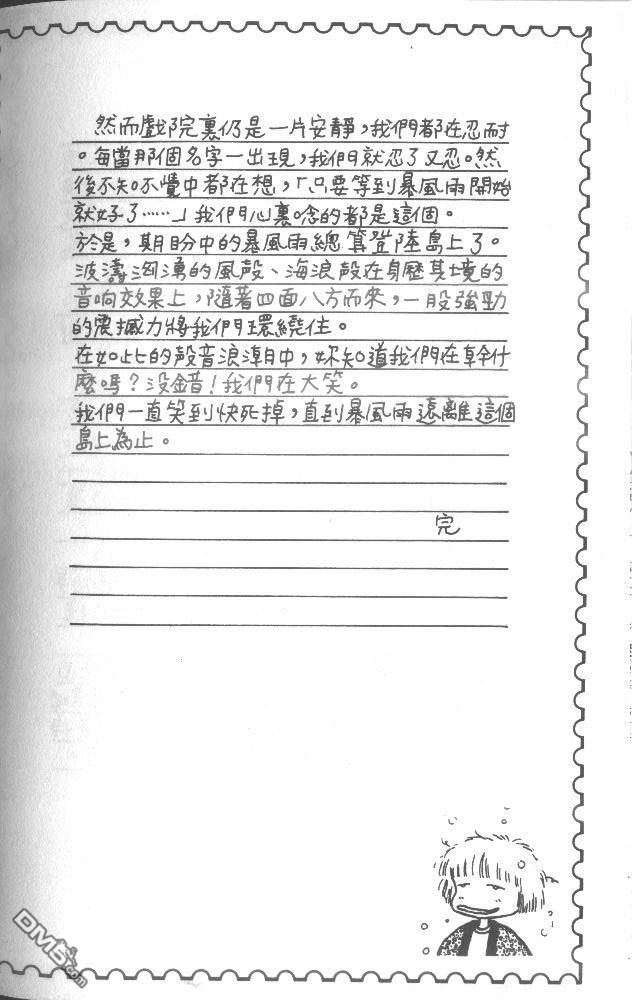 然而戲院裏仍是一片安靜，我們都在忍耐
。每當那個名字一出現，我們就忍了又忍。然
後不知不覺中都在想，「只要等到暴風雨開始
就好了……」我們心裏唸的都是這個。
於是，期盼中的暴風雨總算登陸島上了。
波濤洶湧的風聲、海浪聲在身歷其境的
音响效果上，隨著四面八方而來，一股強勁
的震撼力將我們環繞住。
在如此的聲音浪潮中，妳知道我們在幹什
麼嗎？沒錯！我們在大笑。
我們一直笑到快死掉，直到暴風雨遠離這個
島上為止。
完
DM5.com